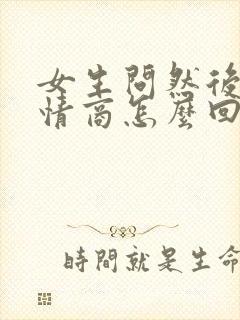 女生問然後
情商怎麼回
時間就是生命